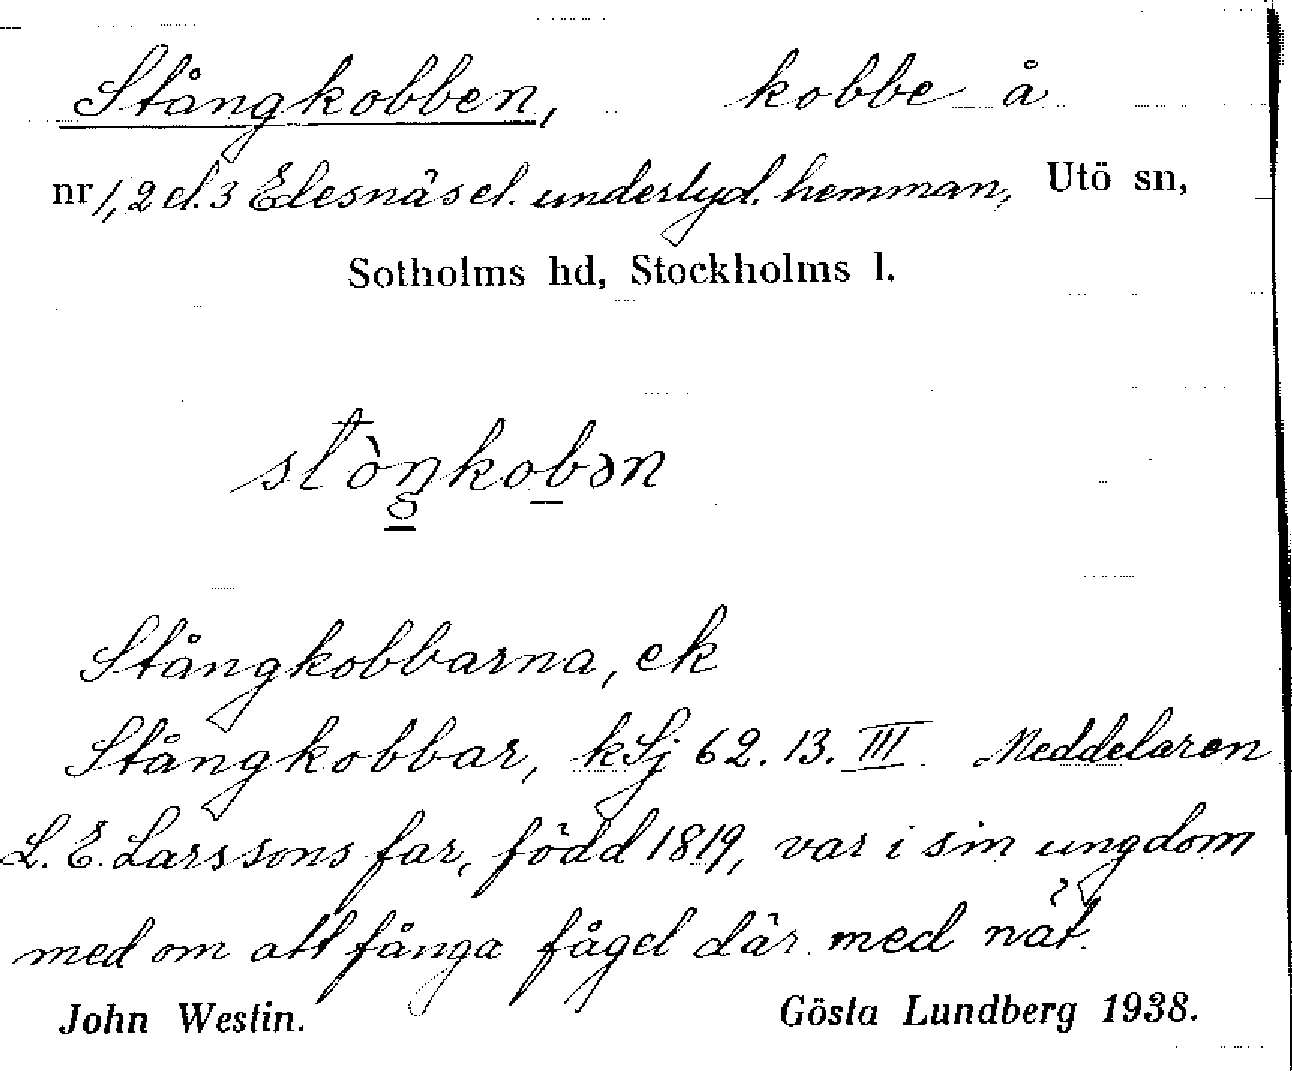 Stångkobben, kobbe å
nr 1, 2 el. 3 Edesnäs el. underlyd. hemman, Utö sn,
Sotholms hd, Stockholms l.
stòŋkobən
Stångkobbarna, ek
Stångkobbar, kSj 62. 13. III. Meddelaren
L. E. Larssons far, född 1819, var i sin ungdom
med om att fånga fågel där med nät.
John Westin. Gösta Lundberg 1938.